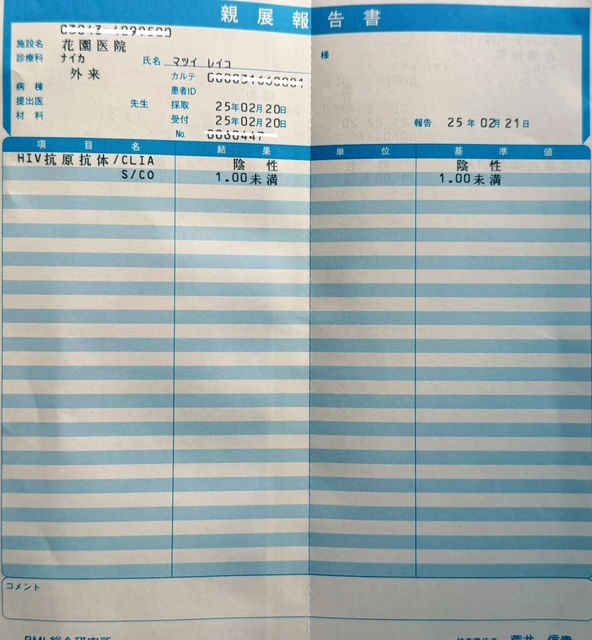 親展報告書
施設名 花園医院
診療科 ナイカ 氏名 マツイ レイコ 様
外来 カルテ
病棟 患者ID
提出医 先生 採取 25年02月20日
材料 受付 25年02月20日 報告 25年02月21日
No. 0060447
項目名 結果 単位 基準値
HIV抗原抗体/CLIA 陰性 陰性
S/CO 1.00未満 1.00未満
コメント